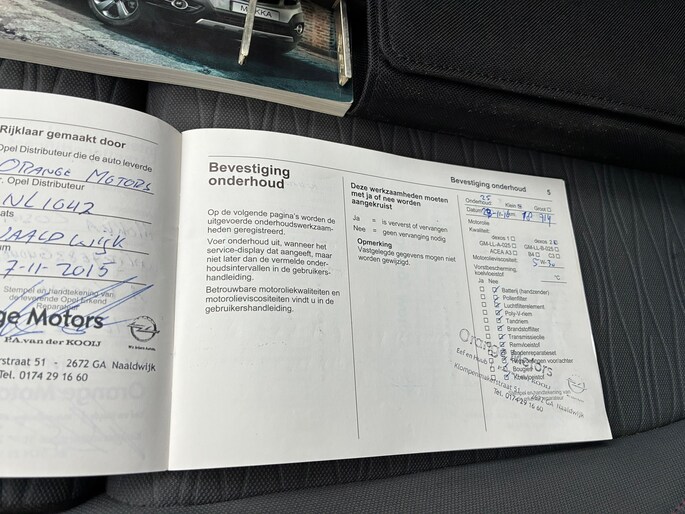 MOKKA
Rijklaar gemaakt door
Opel Distributeur die de auto leverde
ORANGE MOTORS
r. Opel Distributeur
NL1042
ats
NAALDWIJK
um
7-11-2015
Stempel en handtekening van
de leverende Opel Erkend
Reparateur
ge Motors
P.A. van der KOOIJ
rstraat 51 - 2672 GA Naaldwijk
Tel. 0174 29 16 60
Bevestiging
onderhoud
Op de volgende pagina's worden de
uitgevoerde onderhoudswerkzaam-
heden geregistreerd.
Voer onderhoud uit, wanneer het
service-display dat aangeeft, maar
niet later dan de vermelde onder-
houdsintervallen in de gebruikers-
handleiding.
Betrouwbare motoroliekwaliteiten en
motorolieviscositeiten vindt u in de
gebruikershandleiding.
Deze werkzaamheden moeten
met ja of nee worden
aangekruist
Ja = is ververst of vervangen
Nee = geen vervanging nodig
Opmerking
Vastgelegde gegevens mogen niet
worden gewijzigd.
Bevestiging onderhoud 5
Onderhoud: Klein Groot
Datum: km
Motorolie
Kwaliteit:
dexos 1 dexos 2
GM-LL-A-025 GM-LL-B-025
ACEA A3 B4 C3
Motorolieviscositeit:
5W-30
Vorstbescherming,
koelvloeistof °C
Ja Nee
Batterij (handzender)
Pollenfilter
Luchtfilterelement
Poly-V-riem
Tandriem
Brandstoffilter
Transmissieolie
Remvloeistof
Bandenreparatieset
Bougies
Koelvloeistof
Orange Motors
Klompenmakerstraat 51
GA Naaldwijk
Tel. 0174 29 16 60